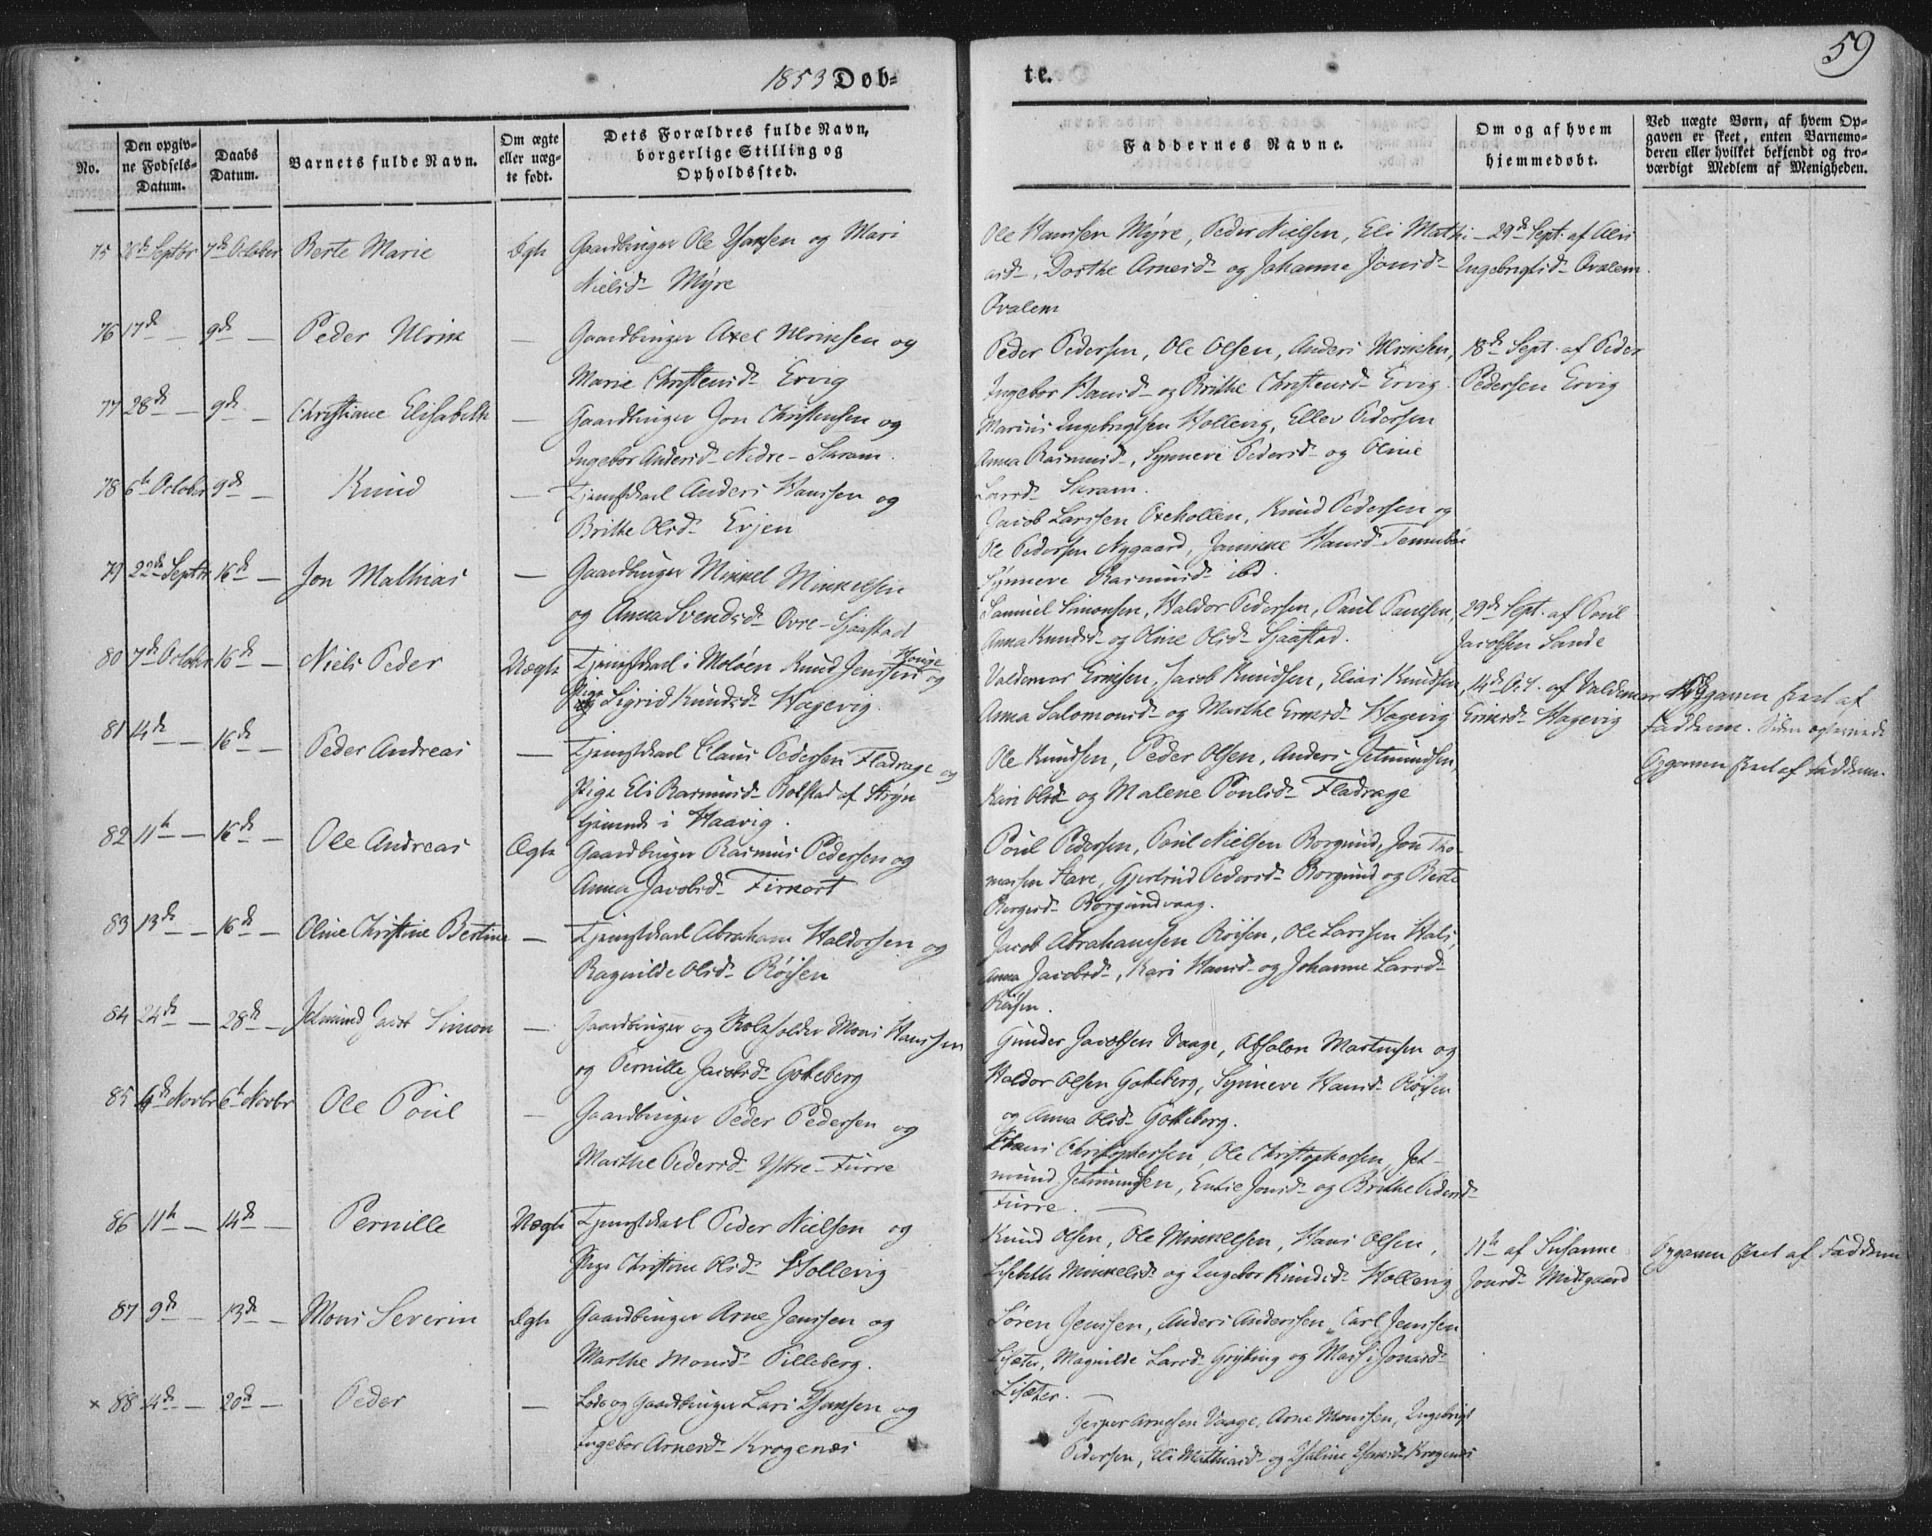 1853 Døb-
te.
59
No.
Den opgiv-
ne Fødsels-
Datum.
Daabs
Datum.
Barnets fulde Navn.
Om ægte
eller uæg-
te født.
Dets Forældres fulde Navn,
borgerlige Stilling og
Opholdssted.
Faddernes Navne.
Om og af hvem
hjemmedøbt.
Ved uægte Børn, af hvem Op-
gaven er skeet, enten Barnemo-
deren eller hvilket bekjendt og tro-
værdigt Medlem af Menigheden.
75 Septbr 7de October Berte Marie Ægte Gaardbruger Ole Hansen og Mari
Nielsd- Myre
Ole Hanssen Myre, Peder Nielsen, Eli Mathi-
asd-, Dorthe Arnesd- og Johanne Jonsd-
Ovalem
29de Sept. af
Ingebrigtsd- Ovalem
76 17de - 9de - Peder Ulrik - Gaardbruger Axel Ulriksen og
Marie Christensd- Ervig
Peder Pedersen, Ole Olsen, Anders Ulriksen,
Ingebor Hansd- og Brithe Christensd- Ervig
18de Sept. af Peder
Pedersen Ervig
77 28de - 9de - Christiane Elisabeth - Gaardbruger Jon Christensen og
Ingebor Andersd- Nedre-
Marius Ingebrigtsen Hollevig, Ellev Pedersen
Anna Rasmusd-, Synneve Pedersd- og Oline
Larsd-
78 6te October 9de - Knud - Tjenestkarl Anders Hanssen og
Brithe Olsd- Evjen
Jacob Larssen Oxehollen, Knud Pedersen og
Ole Pedersen Nygaard, Jannike Hansd-
Synneve Rasmusd- ibd.
79 22de Septbr 16de - Jon Mathias - Gaardbruger Mikkel Mikkelsen
og Anna Svendsd- Øvre-Sjaastad
Samuel Simonsen, Haldor Pedersen, Paul Paulsen,
Anna Knudsd- og Oline Olsd- Sjaastad.
29de Sept. af Poul
Jacobsen Sande
80 7de October 16de - Niels Peder Uægte Tjenestkarl i Moldøen Knud Jenssen og
Pige Sigrid Knudsd- Hagevig.
Valdemar Eriksen, Jacob Knudsen, Elias Knudsen,
Anna Salomonsd- og Marthe Eriksd- Hagevig
14de Oct. af Valdemar
Eriksd- Hagevig
Opgaven skeet af
Fadderne.
81 14de - 16de - Peder Andreas - Tjenestkarl Claus Pedersen Fladrage og
Pige Eli Rasmusd- Rolstad af Stryn
tjenende i Haavig.
Ole Knudsen, Peder Olsen, Anders Jetmundsen,
Kari Olsd- og Malene Poulsd- Fladrage
Opgaven skeet af Fadderne.
82 11te - 16de - Ole Andreas Ægte Gaardbruger Rasmus Pedersen og
Anna Jacobsd-
Poul Pedersen, Poul Nielsen Borgund, Jon Tho-
massen Stave, Gjertrud Pedersd- Borgund og Berte
Borgundvaag.
83 13de - 16de - Oline Christine Bertine - Tjenestkarl Abraham Haldorsen og
Ragnilde Olsd- Røisen
Jacob Abrahamsen Røisen, Ole Larssen Hals,
Anna Jacobsd-, Kari Hansd- og Johanne Larsd-
Røisen.
84 24de - 28de - Jetmund Simon - Gaardbruger og Mons Hanssen
og Pernille Jacobsd- Gotteberg
Gunder Jacobsen Vaage, Absalon Martinsen og
Haldor Olsen Gotteberg, Synneve Hansd- Røisen
og Anna Olsd- Gotteberg.
85 Novbr 6te Novbr Ole Poul - Gaardbruger Peder Pedersen og
Marthe Pedersd- Ytre-Furre
Hans Christophersen, Ole Christophersen, Jet-
mund Jetmundsen, Jonsd- og Brithe Pedersd-
Furre.
86 11te - 14de - Pernille Uægte Tjenestkarl Peder Nielsen og
Pige Christine Olsd- Hollevig
Knud Olsen, Ole Mikkelsen, Hans Olsen,
Lisebeth Mikkelsd- og Ingebor Knudsd- Hollevig
11te af Susanne
Jonsd- Midtgaard
Opgaven skeet af Fadderne
87 9de - 13de - Mons Severin Ægte Gaardbruger Arne Jenssen og
Marthe Monsd- Pilleberg.
Søren Jenssen, Anders Anderssen, Carl Jenssen
Lisæter, Magnilde Larsd- og Jonasd-
Lisæter.
× 88 14de - 20de - Peder - Lods og Gaardbruger Lars Hansen og
Ingebor Arnesd- Krogenæs
Jesper Arnesen Vaage, Arne Monssen, Ingebrigt
Pedersen, Eli Mathiasd- og Hansd- Krogenæs